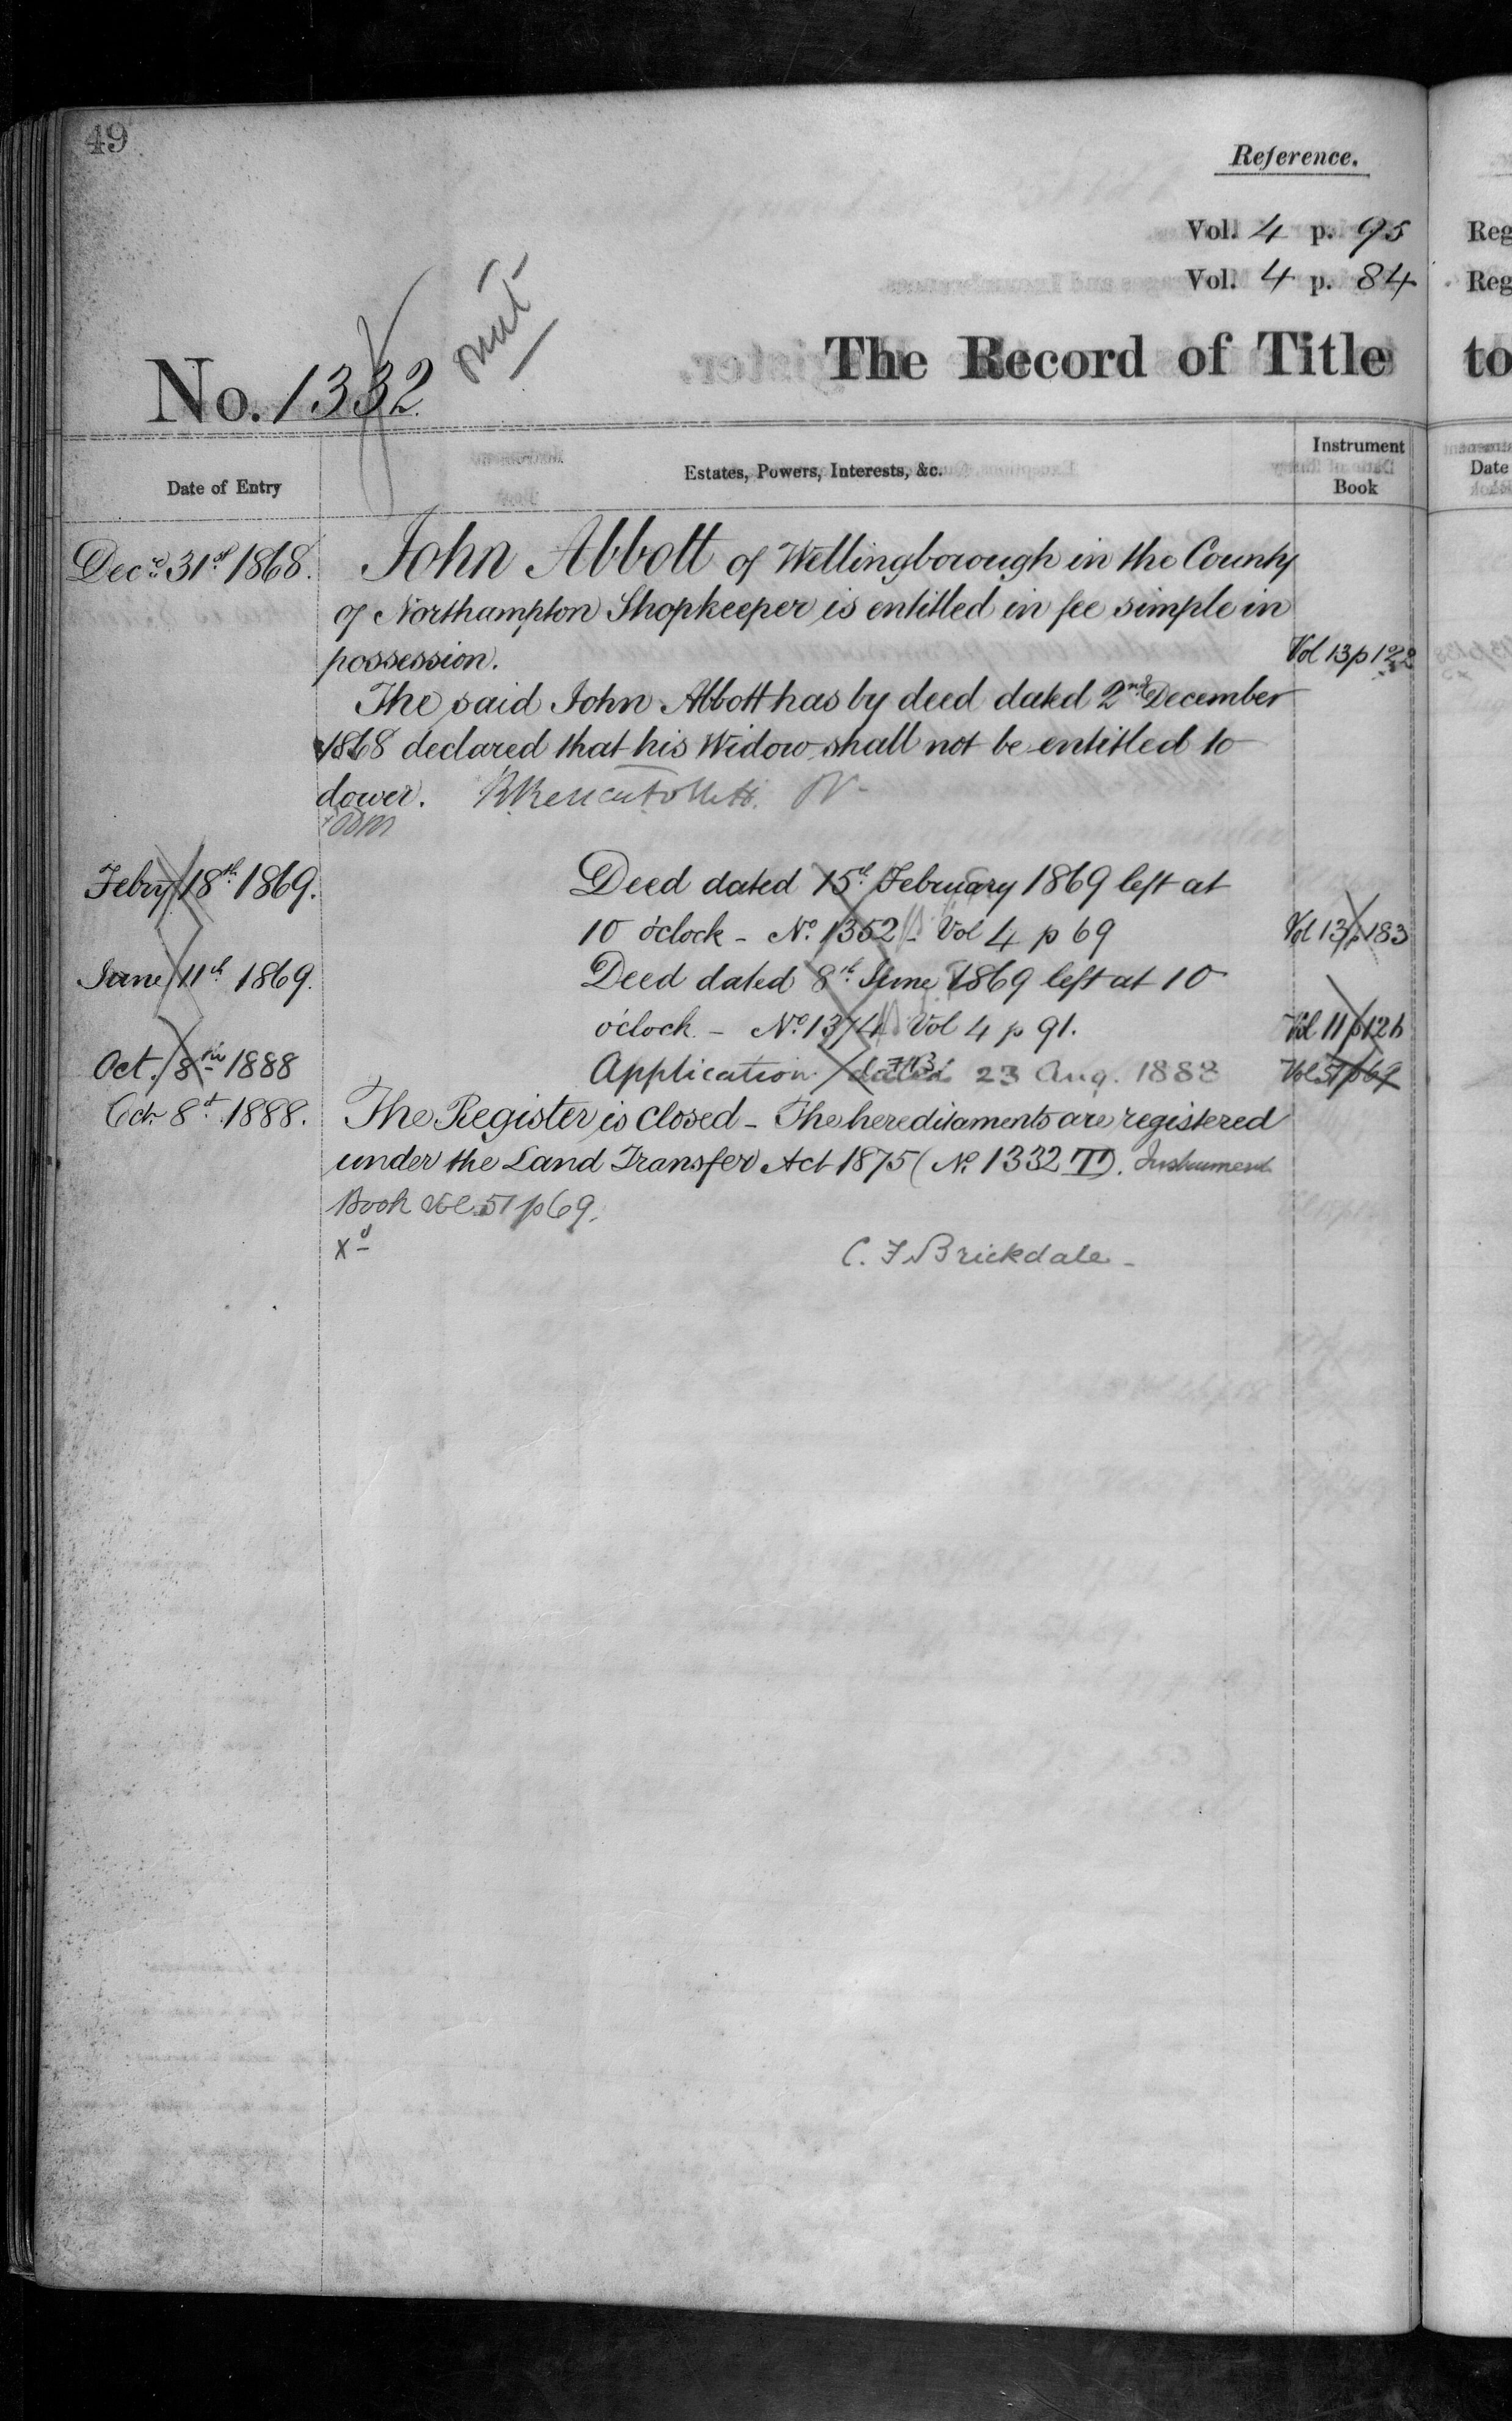 49
Reference.
Vol. 4 p. 95
Vol. 4 p. 84
No. 1332.
omit
The Record of Title
Date of Entry
Estates, Powers, Interests, &c.
Instrument Book
Decr. 31st 1868.
John Abbott of Wellingborough in the County
of Northampton Shopkeeper is entitled in fee simple in
possession.
Vol 13 p 122
The said John Abbott has by deed dated 2nd December
1868 declared that his Widow shall not be entitled to
dower.
Febry 18th 1869.
Deed dated 15th February 1869 left at
10 o'clock - No. 1352 - Vol 4 p 69
Vol 13 p 183
June 11th 1869.
Deed dated 8th June 1869 left at 10
o'clock - No. 1374 Vol 4 p 91.
Vol 11 p 126
Oct. 8th 1888
Application dated 23 Aug. 1888
Vol 51 p 69
Oct. 8th 1888.
The Register is closed - The hereditaments are registered
under the Land Transfer Act 1875 (No. 1332 T). Instrument
Book Vol. 51 p 69.
Xd
C. F. Brickdale -
Reg
Reg
to
Date